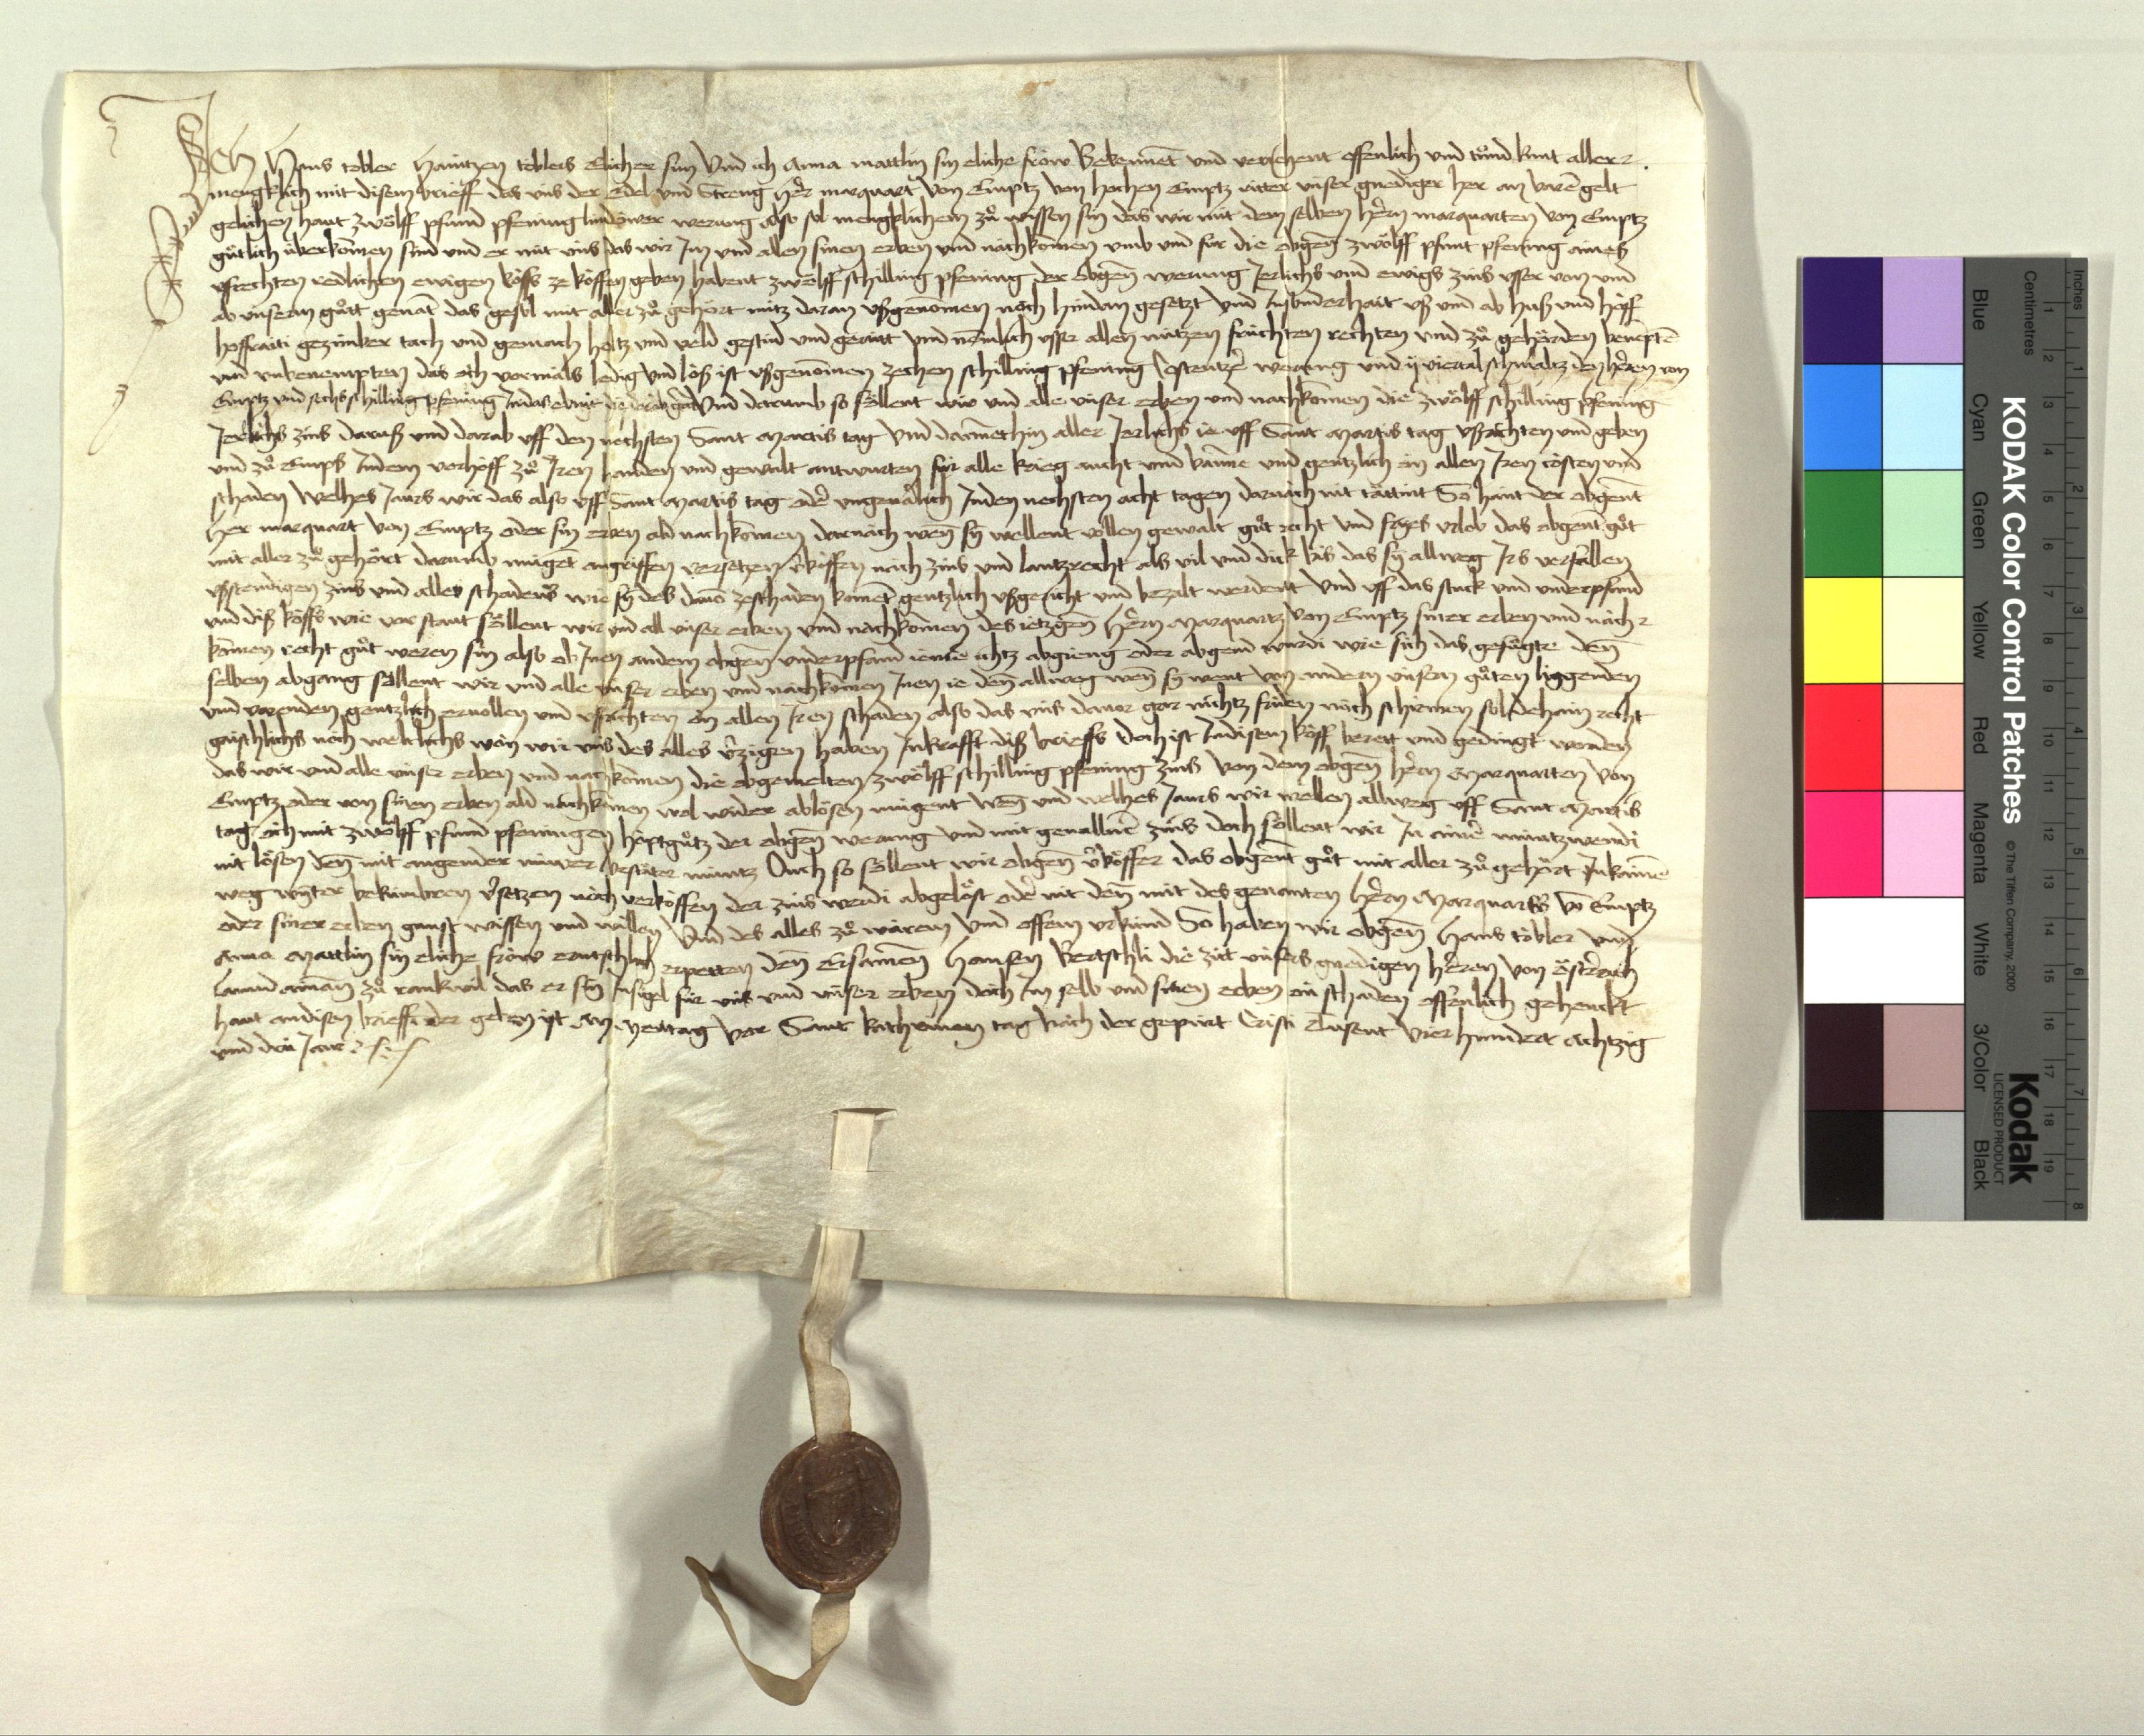 Ich Hans tobler Haintzen toblers Elicher sun Und ich Anna mattlin sin eliche fröw Bekennent und verjehent offenlich und tůnd kunt aller
mengklich mit disem brieff das uns der Edel und Streng Her marquart von Emptz von hochen Emptz ritter unser gnediger her an barē gelt
gelichen haut zwölff pfund pfening lindower werung also sol mengklichem zů wissen sin das wir mit dem selben hern marquarten von Emptz
gůtlich überkomen sind und er mit uns das wir Im und allen sinen erben und nachkomen umb und für die obgen zwölff pfunt pfening aines
ufrechten redlichen ewigen köffs ze köffen geben habent zwölff schilling pfening der obgen werung Jerlichs und ewigs zins usser von und
ab unserm gůtt genāt das gesol mit aller zů gehört nütz daran ußgenomen noch hindan gesetzt Und Insunderhait uß und ab huß und höff
hoffraiti gezimber tach und gemach holtz und veld gestüd und geritt Und nemlich usser allen nutzen früchten rechten und zů gehörden benempten
und unbenempten das och vormals ledig und löß ist ußgenomen zechen schilling pfening werung und ij viertal schmaltz den heren von
Emptz und sechs schilling pfening Und darumb so söllent wir und alle unser erben und nachkomen die zwölff schilling pfening
Jerlichs zins daruß und darab uff den nechsten Sant Martis tag Und dannethin aller Jerlichs ie uff Sant Martis tag ußrichten und geben
und zů Emps Indem vorhöff zů Iren handen und gewalt antwurten für alle krieg aucht und bänne und gentzlich ön allen Iren costen und
schaden Welhes Jaurs wir das also uff Sant Martis tag oder ungevarlich Inden nechsten acht tagen darnach nit tättint So haut der obgent
Her marquart von Emptz oder sin erben ald nachkomen darnach wen sy wellent vollen gewalt gůt recht und fryes urlob das obgent gůt
mit aller zů gehört darumb mügent angriffen versetzen verköffen nach zins und lantzrecht als vil und dick bis das sy allweg Irs verfallen
ußstendigen zins und alles schadens wie sy des davō zeschaden koment gentzlich ußgericht und bezalt werdent Und uff das stuck und underpfand
und diß köffs wie vor staut söllent wir und all unser erben und nachkomen des ietzgen Hern Marquartz von Emptz siner erben und nach
komen recht gůt weren sin also ob Inen andem obgen underpfand iemie ichtz abgieng oder abgend wurdi wie sich das gefůgte den
selben abgang söllent wir und alle unser erben und nachkomen Inen ie den allweg wen sy went von andern unsern gůten liggenden
und varenden gentzlich ervollen und ußrichten ön allen Iren schaden also das uns davor gar nichtz friden noch schirmen sol dehain recht
gaischlichs noch weltlichs won wir uns des alles verzigen haben Inkrafft diß brieffs Doch ist Indisem köff berett und gedingt worden
das wir und alle unser erben und nachkomen die obgemelten zwölff schilling pfening zins von dem obgen hern Marquarten von
Emptz oder von sinen erben ald nachkomen wol wider ablösen mügent Wen und welhes Jaurs wir wellen allweg uff Sant Martis
tag och mit zwölff pfund pfeningen höptgůtz der obgen werung und mit gevallnē zins doch söllent wir In ainer müntzwendi
nit lösen den mit angender nüwer bestäter müntz Ouch so söllent wir obgen verköffer das obgent gůt mit aller zů gehört Inkainē
weg wyter bekümbren versetzen noch verköffen der zins werdi abgelöst oder nit den mit des genanten Hern Marquartz vō Emptz
oder siner erben gunst wissen und willen Und des alles zů wärem und offem urkund So haben wir obgen Hans tobler und
Anna Mattlin sin eliche fröw ernschlich erpetten den Ersamen Hansen Bertschli die zit unsers gnedigen heren von österrich
Land aman zů rankwil das er sin Insigel für uns und unser erben doch Im selb und sinen erben ön schaden offenlich gehenckt
haut andisen brieff der geben ist An Mentag vor Sant kathrinen tag Nach der gepürt Cristi Tusent vierhundert Achtzig
und drü Jare
KODAK Color Control Patches
© The Tiffen Company, 2000
Kodak
LICENSED PRODUCT
Blue Cyan Green Yellow Red Magenta White 3/Color Black
Centimetres
1 2 3 4 5 6 7 8 9 10 11 12 13 14 15 16 17 18 19
Inches
1 2 3 4 5 6 7 8